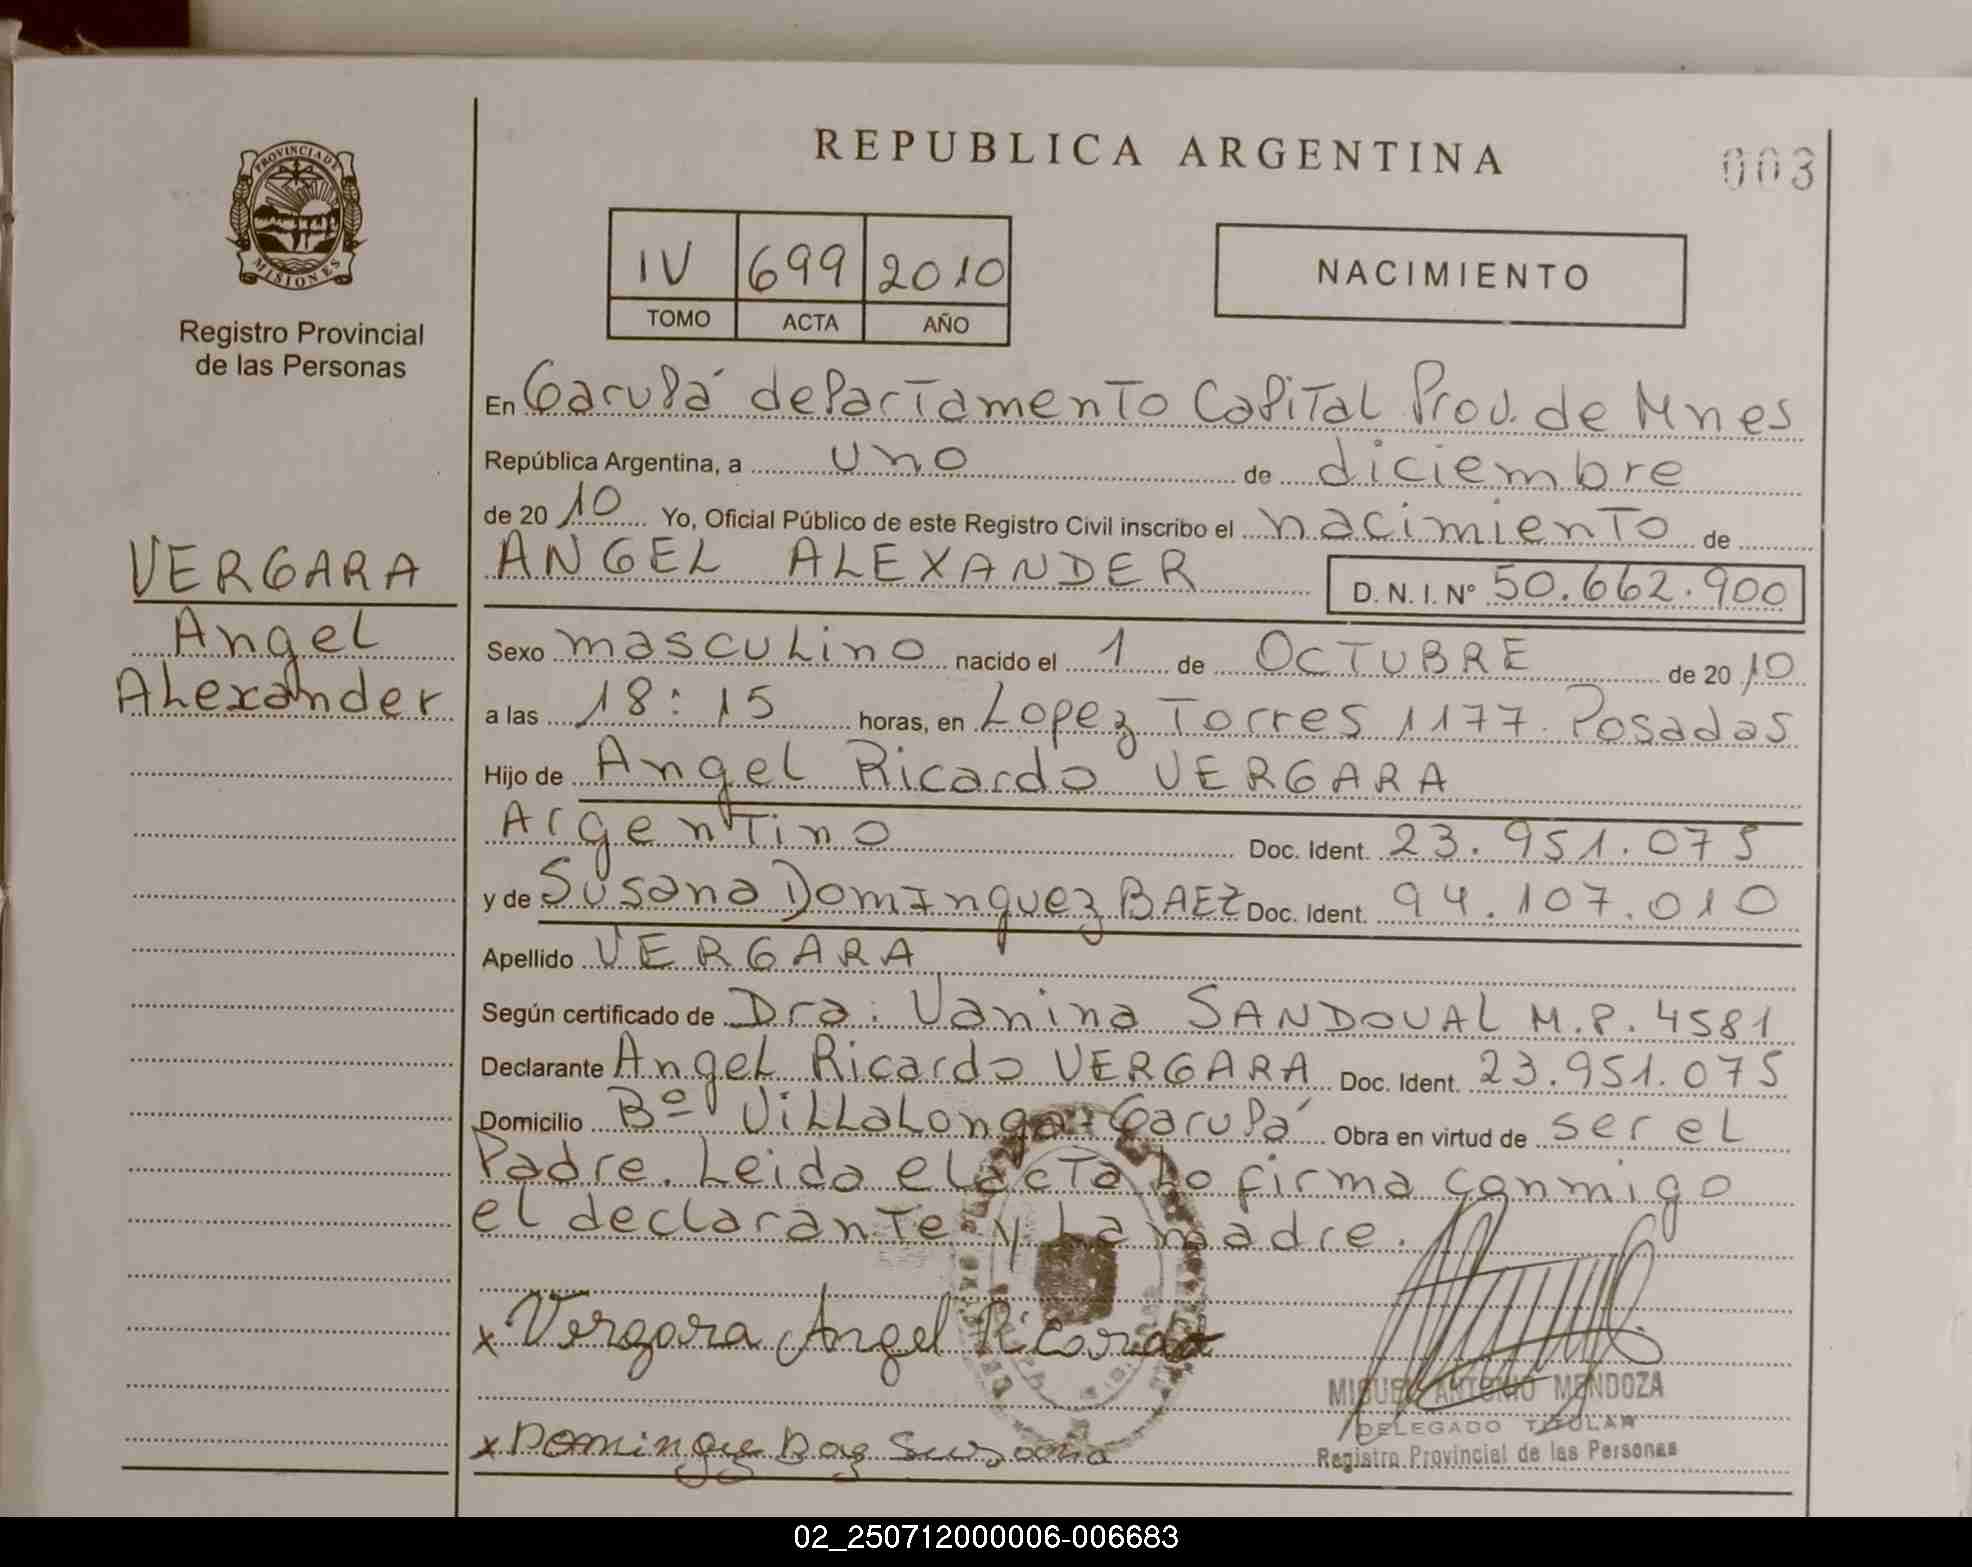 REPUBLICA ARGENTINA
003
PROVINCIA DE
MISIONES
Registro Provincial
de las Personas
IV 699 2010
TOMO ACTA AÑO
NACIMIENTO
En Garupá departamento Capital Prov. de Mnes
República Argentina, a uno de diciembre
de 2010 Yo, Oficial Público de este Registro Civil inscribo el nacimiento de
ANGEL ALEXANDER D.N.I. Nº 50.662.900
VERGARA
Angel
Alexander
Sexo masculino nacido el 1 de OCTUBRE de 2010
a las 18:15 horas, en Lopez Torres 1177. Posadas
Hijo de Angel Ricardo VERGARA
Argentino Doc. Ident. 23.951.075
y de Susana Domínguez BAEZ Doc. Ident. 94.107.010
Apellido VERGARA
Según certificado de Dra: Vanina SANDOVAL M.P. 4581
Declarante Angel Ricardo VERGARA Doc. Ident. 23.951.075
Domicilio Bº Villalonga Garupá Obra en virtud de ser el
Padre. Leida el acta Lo firma conmigo
el declarante y La madre.
x Vergara Angel Ricardo
MIGUEL ANTONIO MENDOZA
DELEGADO TITULAR
Registro Provincial de las Personas
x Dominguez Baez Susana
02_250712000006-006683